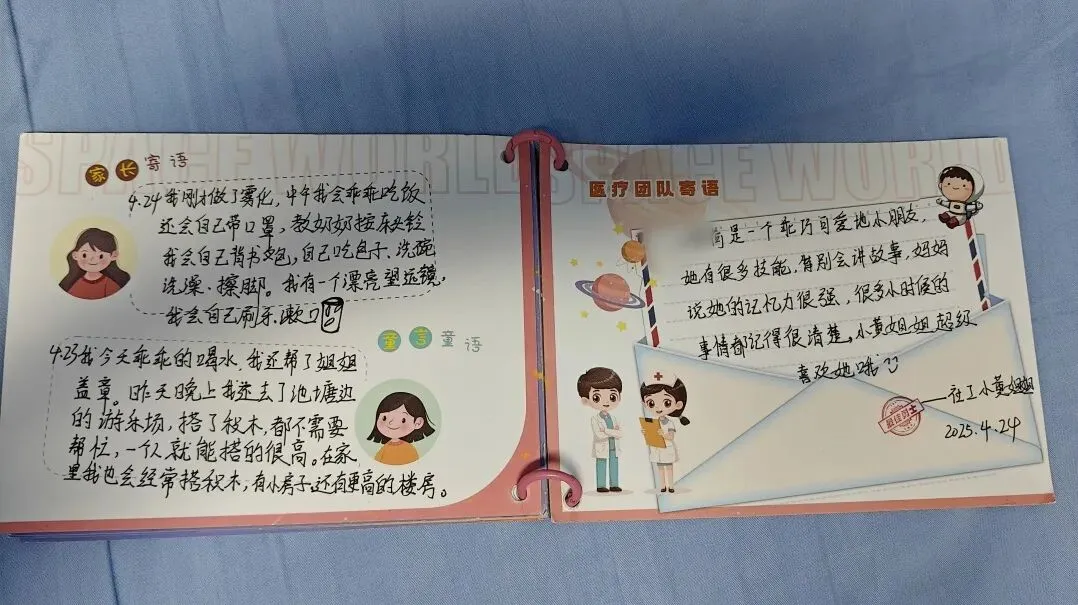 SPACE WORLD
家长寄语
4.24 我刚才做了雾化，中午我会乖乖吃饭
还会自己带口罩，教奶奶按床头铃
我会自己背书包，自己吃包子、洗碗
洗澡、擦脚。我有一个漂亮望远镜，
我会自己刷牙、漱口
童言童语
4.23 我今天乖乖的喝水，我还帮了姐姐
盖章。昨天晚上我还去了池塘边
的游乐场，搭了积木，都不需要
帮忙，一个人就能搭的很高。在家
里我也会经常搭积木，有小房子还有更高的楼房。
SPACE WORLD
医疗团队寄语
是一个乖巧可爱地小朋友，
她有很多技能，特别会讲故事，妈妈
说她的记忆力很强，很多小时候的
事情都记得很清楚，小黄姐姐超级
喜欢她哦
——社工小黄姐姐
2025.4.24